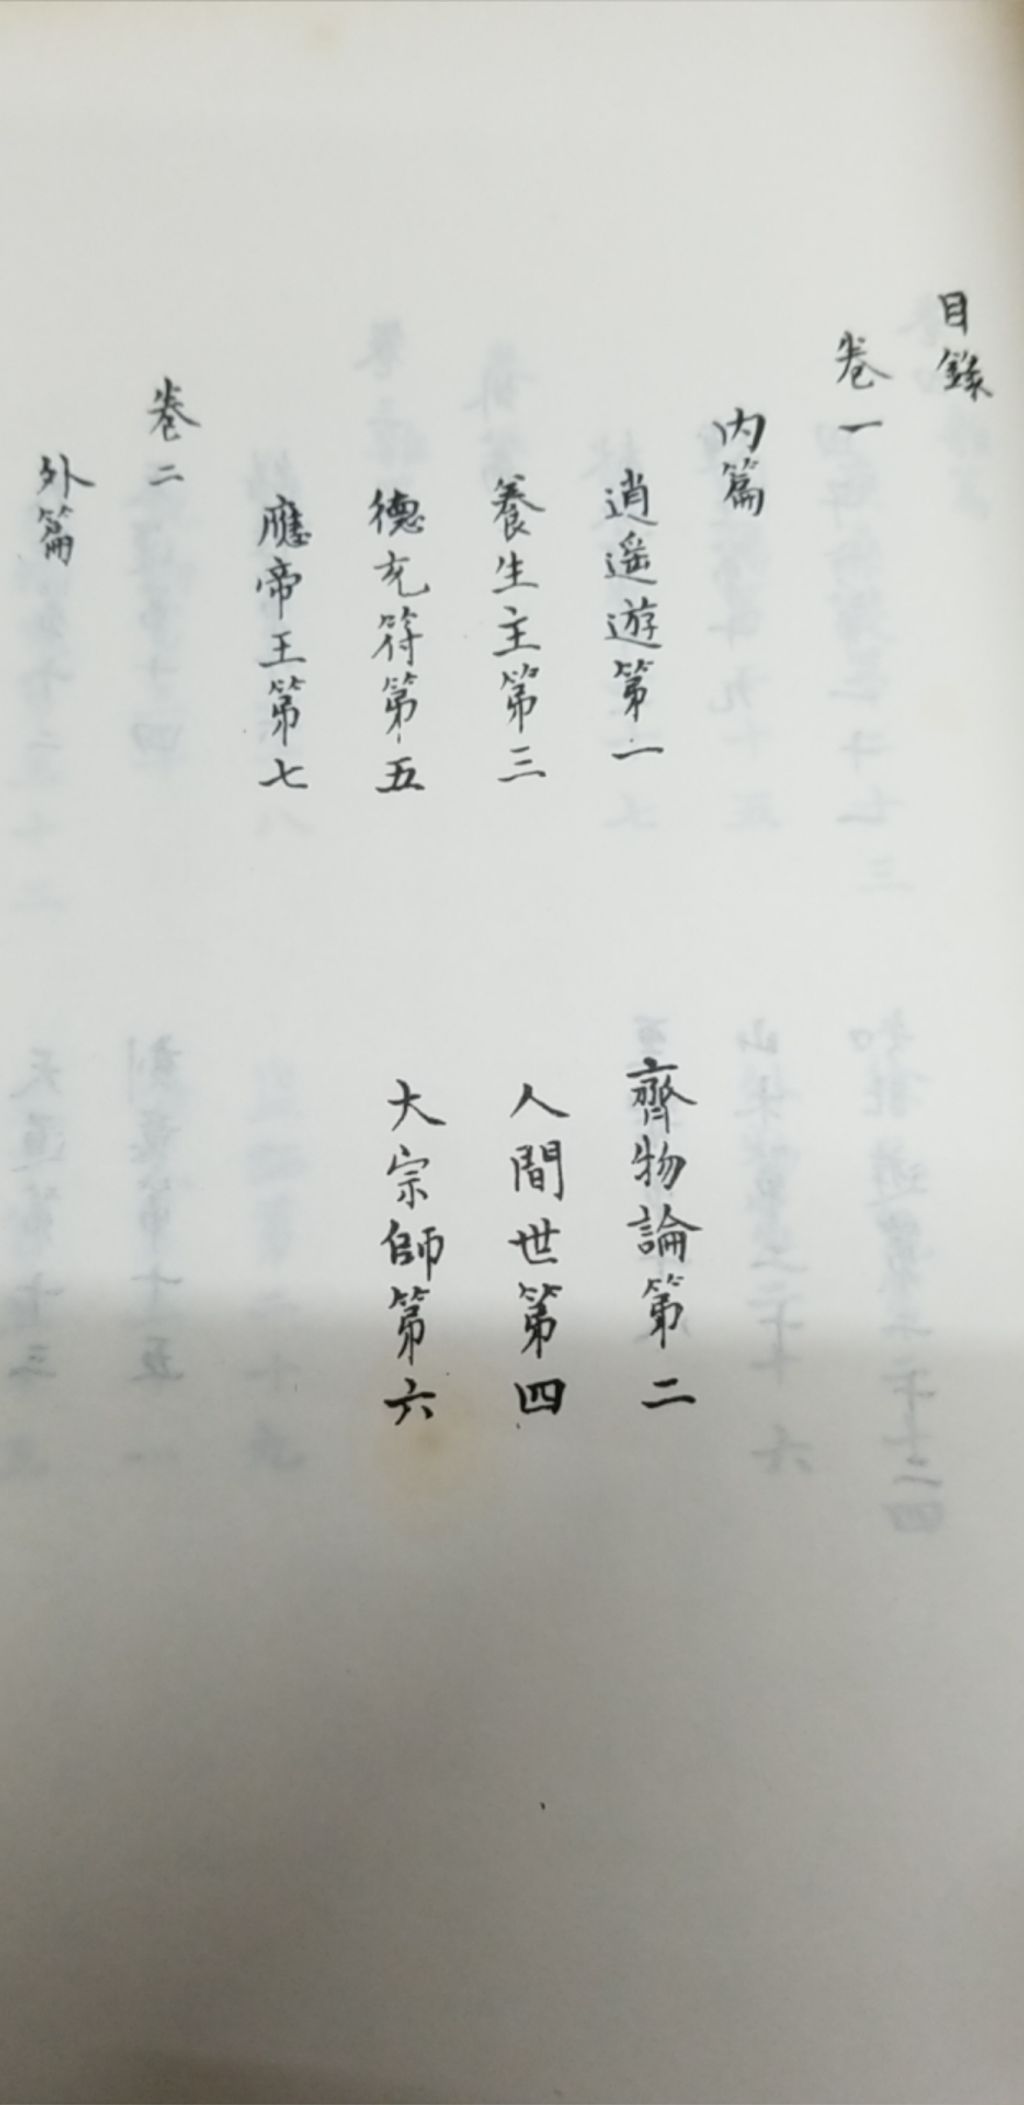 目錄
卷一
內篇
逍遙遊第一
齊物論第二
養生主第三
人間世第四
德充符第五
大宗師第六
應帝王第七
卷二
外篇